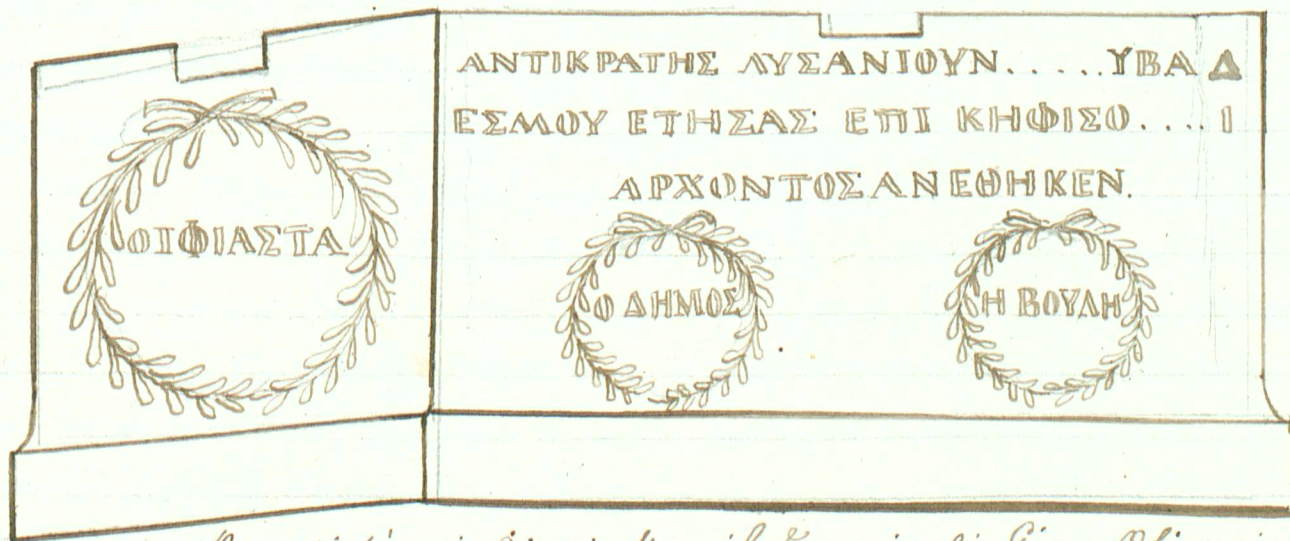 ΟΙΦΙΑΣΤΑ
ΑΝΤΙΚΡΑΤΗΣ ΛΥΣΑΝΙΟΥΝ.....ΥΒΑΔ
ΕΣΜΟΥ ΕΤΗΣΑΣ ΕΠΙ ΚΗΦΙΣΟ....Ι
ΑΡΧΟΝΤΟΣΑΝΕΘΗΚΕΝ.
Ο ΔΗΜΟΣ
Η ΒΟΥΛΗ